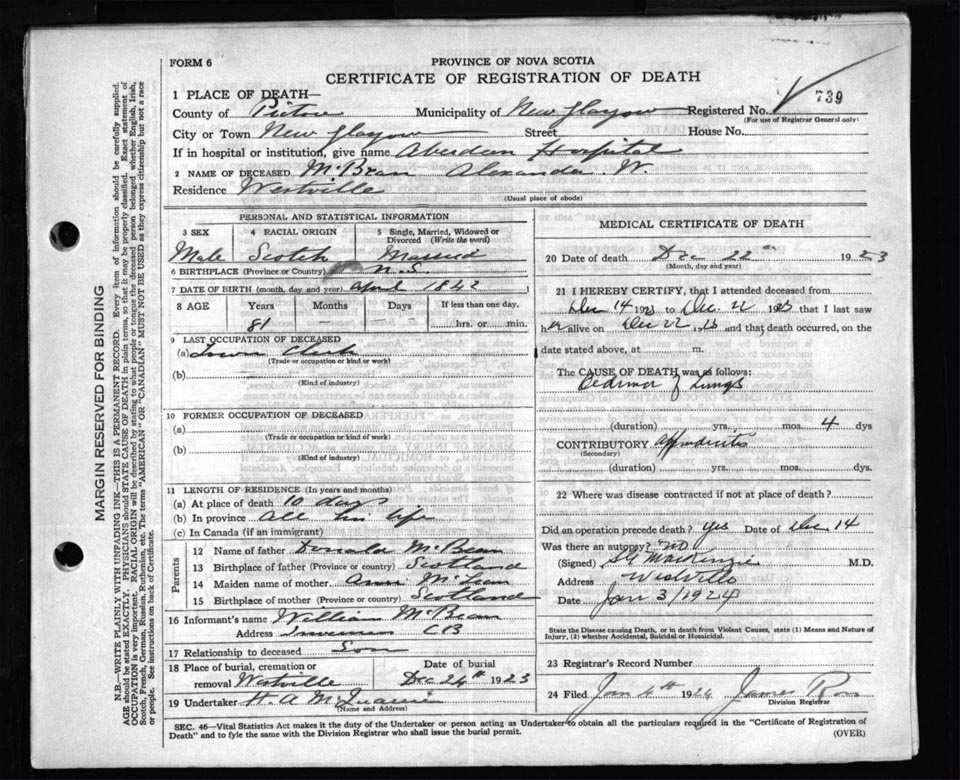 PROVINCE OF NOVA SCOTIA
FORM 6
CERTIFICATE OF REGISTRATION OF DEATH
1 PLACE OF DEATH—
County of Pictou Municipality of New Glasgow Registered No. 739
(For use of Registrar General only)
City or Town New Glasgow Street House No.
If in hospital or institution, give name Aberdeen Hospital
2 NAME OF DECEASED McBean Alexander W.
Residence Westville
(Usual place of abode)
PERSONAL AND STATISTICAL INFORMATION
3 SEX 4 RACIAL ORIGIN 5 Single, Married, Widowed or Divorced (Write the word)
Male Scotch Married
6 BIRTHPLACE (Province or Country) N.S.
7 DATE OF BIRTH (month, day and year) April 1842
8 AGE Years Months Days If less than one day,
81 — — hrs. or min.
9 LAST OCCUPATION OF DECEASED
(a) Town Clerk
(Trade or occupation or kind or work)
(b)
(Kind of industry)
10 FORMER OCCUPATION OF DECEASED
(a)
(Trade or occupation or kind of work)
(b)
(Kind of industry)
11 LENGTH OF RESIDENCE (In years and months)
(a) At place of death 10 days
(b) In province All his life
(c) In Canada (if an immigrant)
Parents
12 Name of father Donald McBean
13 Birthplace of father (Province or country) Scotland
14 Maiden name of mother Ann McLean
15 Birthplace of mother (Province or country) Scotland
16 Informant's name William McBean
Address Inverness CB
17 Relationship to deceased Son
18 Place of burial, cremation or removal Westville
Date of burial Dec 24th 1923
19 Undertaker H. A.
(Name and Address)
MEDICAL CERTIFICATE OF DEATH
20 Date of death Dec 22 1923
(Month, day and year)
21 I HEREBY CERTIFY, that I attended deceased from
Dec 14 1923 to Dec. 22 1923 that I last saw
h alive on Dec 22 1923 and that death occurred, on the
date stated above, at m.
The CAUSE OF DEATH was as follows:
Oedema of Lungs
(duration) yrs. mos. 4 dys
CONTRIBUTORY Appendicitis
(Secondary)
(duration) yrs. mos. dys.
22 Where was disease contracted if not at place of death?
Did an operation precede death? Yes Date of Dec 14
Was there an autopsy? No
(Signed) MacKenzie M.D.
Address Westville
Date Jan 3/1924
State the Disease causing Death, or in death from Violent Causes, state (1) Means and Nature of
Injury, (2) whether Accidental, Suicidal or Homicidal.
23 Registrar's Record Number
24 Filed Jan 4th 1924 James Ross
Division Registrar
SEC. 46—Vital Statistics Act makes it duty of the Undertaker or person acting as Undertaker to obtain all the particulars required in the "Certificate of Registration of
Death" and to fyle the same with the Division Registrar who shall issue the burial permit.
(OVER)
MARGIN RESERVED FOR BINDING
N.B.—WRITE PLAINLY WITH UNFADING INK—THIS IS A PERMANENT RECORD. Every item of information should be carefully supplied.
AGE should be stated EXACTLY. PHYSICIANS should STATE CAUSE OF DEATH in plain terms, so that it may be properly classified. Exact statement of
OCCUPATION is very important. RACIAL ORIGIN will be described by stating to what people or tongue the deceased person belonged whether English, Irish,
Scotch, French, German, Russian, Ruthenian, etc. The terms "AMERICAN" or "CANADIAN" MUST NOT BE USED as they express citizenship but not a race
or people. See instructions on back of Certificate.